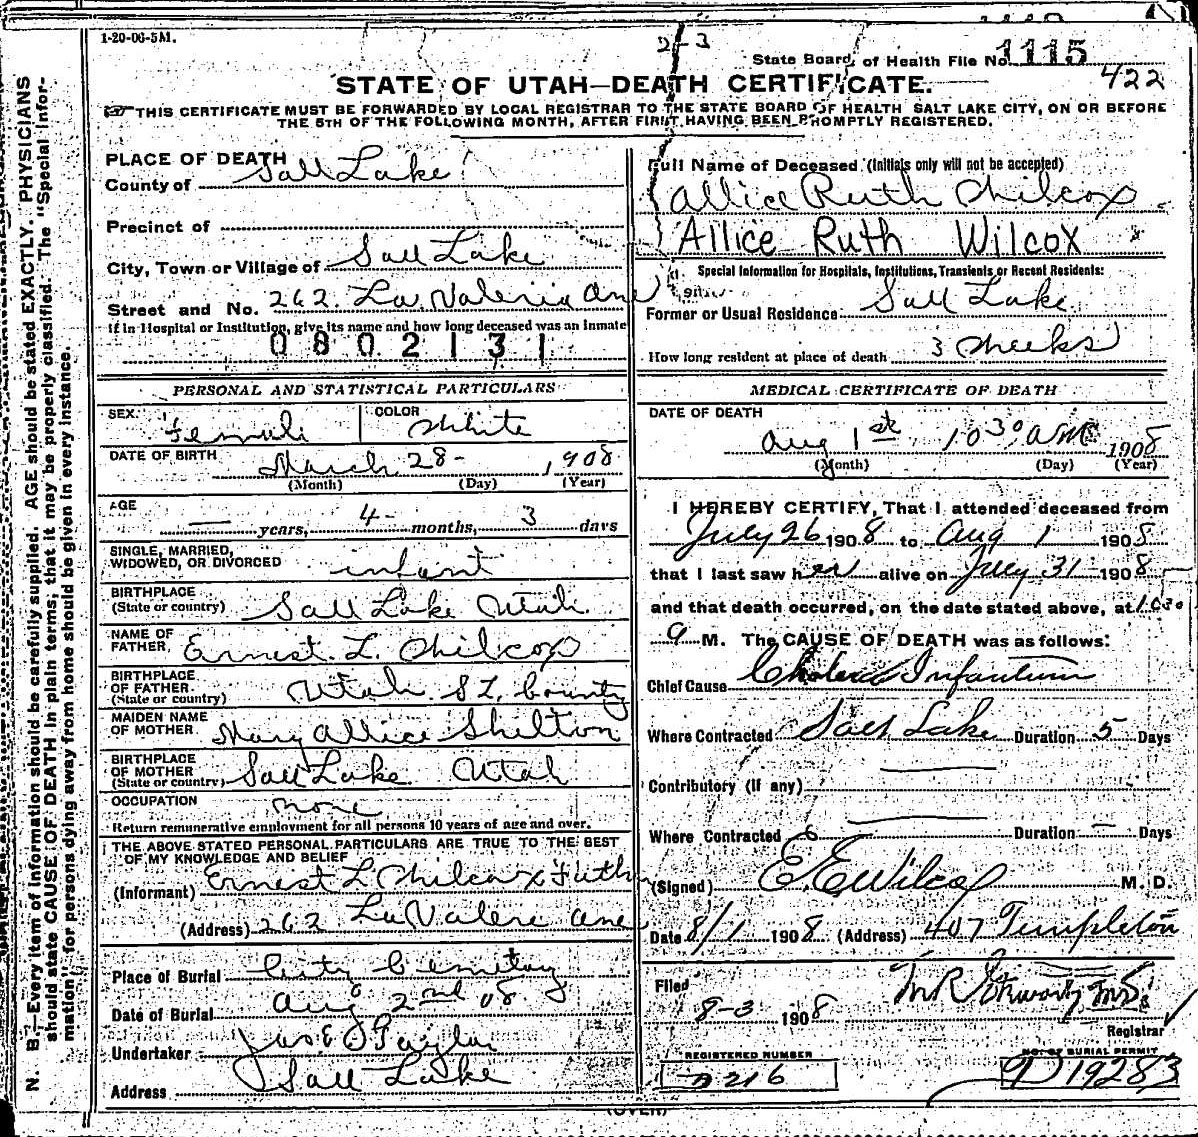 1-20-06-5M.
2-3
State Board of Health File No. 1115
422
STATE OF UTAH—DEATH CERTIFICATE.
☞ THIS CERTIFICATE MUST BE FORWARDED BY LOCAL REGISTRAR TO THE STATE BOARD OF HEALTH SALT LAKE CITY, ON OR BEFORE
THE 5TH OF THE FOLLOWING MONTH, AFTER FIRST HAVING BEEN PROMPTLY REGISTERED.
N. B.—Every item of information should be carefully supplied. AGE should be stated EXACTLY. PHYSICIANS
should state CAUSE OF DEATH in plain terms, that it may be properly classified. The "Special Infor-
mation" for persons dying away from home should be given in every instance.
PLACE OF DEATH
County of Salt Lake
Precinct of
City, Town or Village of Salt Lake
Street and No. 262. La Valeria Ave
If in Hospital or Institution, give its name and how long deceased was an inmate
0802131
PERSONAL AND STATISTICAL PARTICULARS
SEX. female COLOR White
DATE OF BIRTH March 28- 1908
(Month) (Day) (Year)
AGE — years, 4- months, 3 days
SINGLE, MARRIED,
WIDOWED, OR DIVORCED infant
BIRTHPLACE
(State or country) Salt Lake Utah
NAME OF
FATHER, Ernest. L. Wilcox
BIRTHPLACE
OF FATHER
(State or country) Utah S L. County
MAIDEN NAME
OF MOTHER Mary Allice Shelton
BIRTHPLACE
OF MOTHER
(State or country) Salt Lake Utah
OCCUPATION none
Return remunerative employment for all persons 10 years of age and over.
THE ABOVE STATED PERSONAL PARTICULARS ARE TRUE TO THE BEST
OF MY KNOWLEDGE AND BELIEF
(Informant) Ernest L Wilcox Father
(Address) 262 La Valere Ave
Place of Burial City Cemetay
Date of Burial Aug 2nd 08
Undertaker Jos E Taylor
Address Salt Lake
Full Name of Deceased (Initials only will not be accepted)
Allice Ruth Wilcox
Allice Ruth Wilcox
Special Information for Hospitals, Institutions, Transients or Recent Residents:
Former or Usual Residence Salt Lake
How long resident at place of death 3 Weeks
MEDICAL CERTIFICATE OF DEATH
DATE OF DEATH
Aug 1st 10 30 AM 1908
(Month) (Day) (Year)
I HEREBY CERTIFY, That I attended deceased from
July 26 1908 to Aug 1 1908
that I last saw her alive on July 31 1908
and that death occurred, on the date stated above, at 10 30
a M. The CAUSE OF DEATH was as follows:
Chief Cause Cholera Infantum
Where Contracted Salt Lake Duration 5 Days
Contributory (if any)
Where Contracted Duration — Days
(Signed) E. E Wilcox M. D.
Date 8/1 1908 (Address) 407 Templeton
Filed
8-3 1908
Registrar
REGISTERED NUMBER
NO. OF BURIAL PERMIT
D 216
D19283
(OVER)